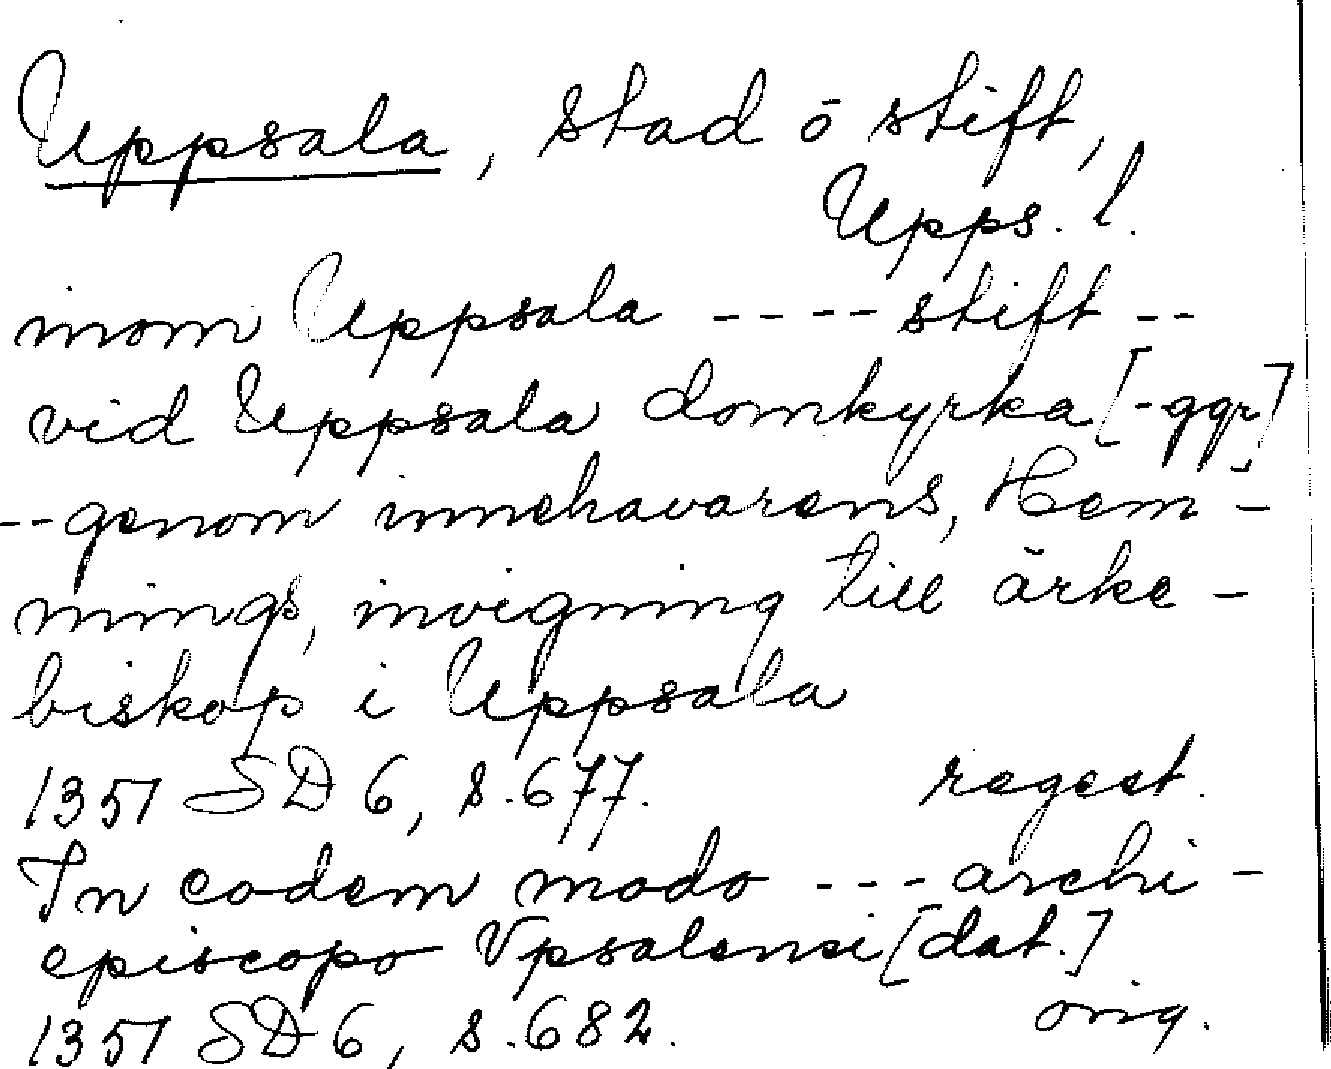 Uppsala, stad ō stift,
Upps. l.
inom Uppsala ---- stift --
vid Uppsala domkyrka [-ggr]
--genom innehavarens, Hem-
mings, invigning till ärke-
biskop i Uppsala
1351 SD 6, s. 677. regest.
In eodem modo --- archi-
episcopo Vpsalensi [dat.]
1351 SD 6, s. 682. orig.